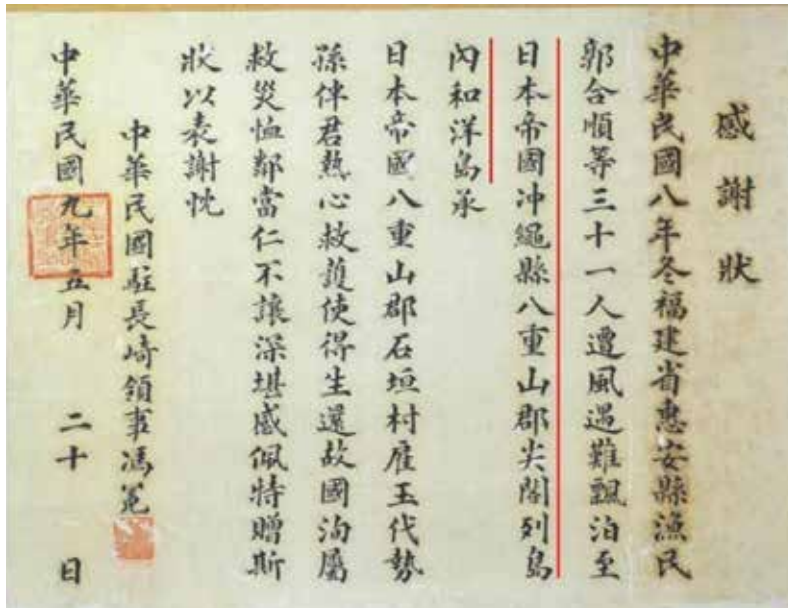 感謝狀
中華民國八年冬福建省惠安縣漁民
郭合順等三十一人遭風遇難飄泊至
日本帝國冲繩縣八重山郡尖閣列島
內和洋島承
日本帝國八重山郡石垣村雇玉代勢
孫伴君熱心救護使得生還故國洵屬
救災恤鄰當仁不讓深堪感佩特贈斯
狀以表謝忱
中華民國駐長崎領事馮冕
中華民國九年五月 二十 日